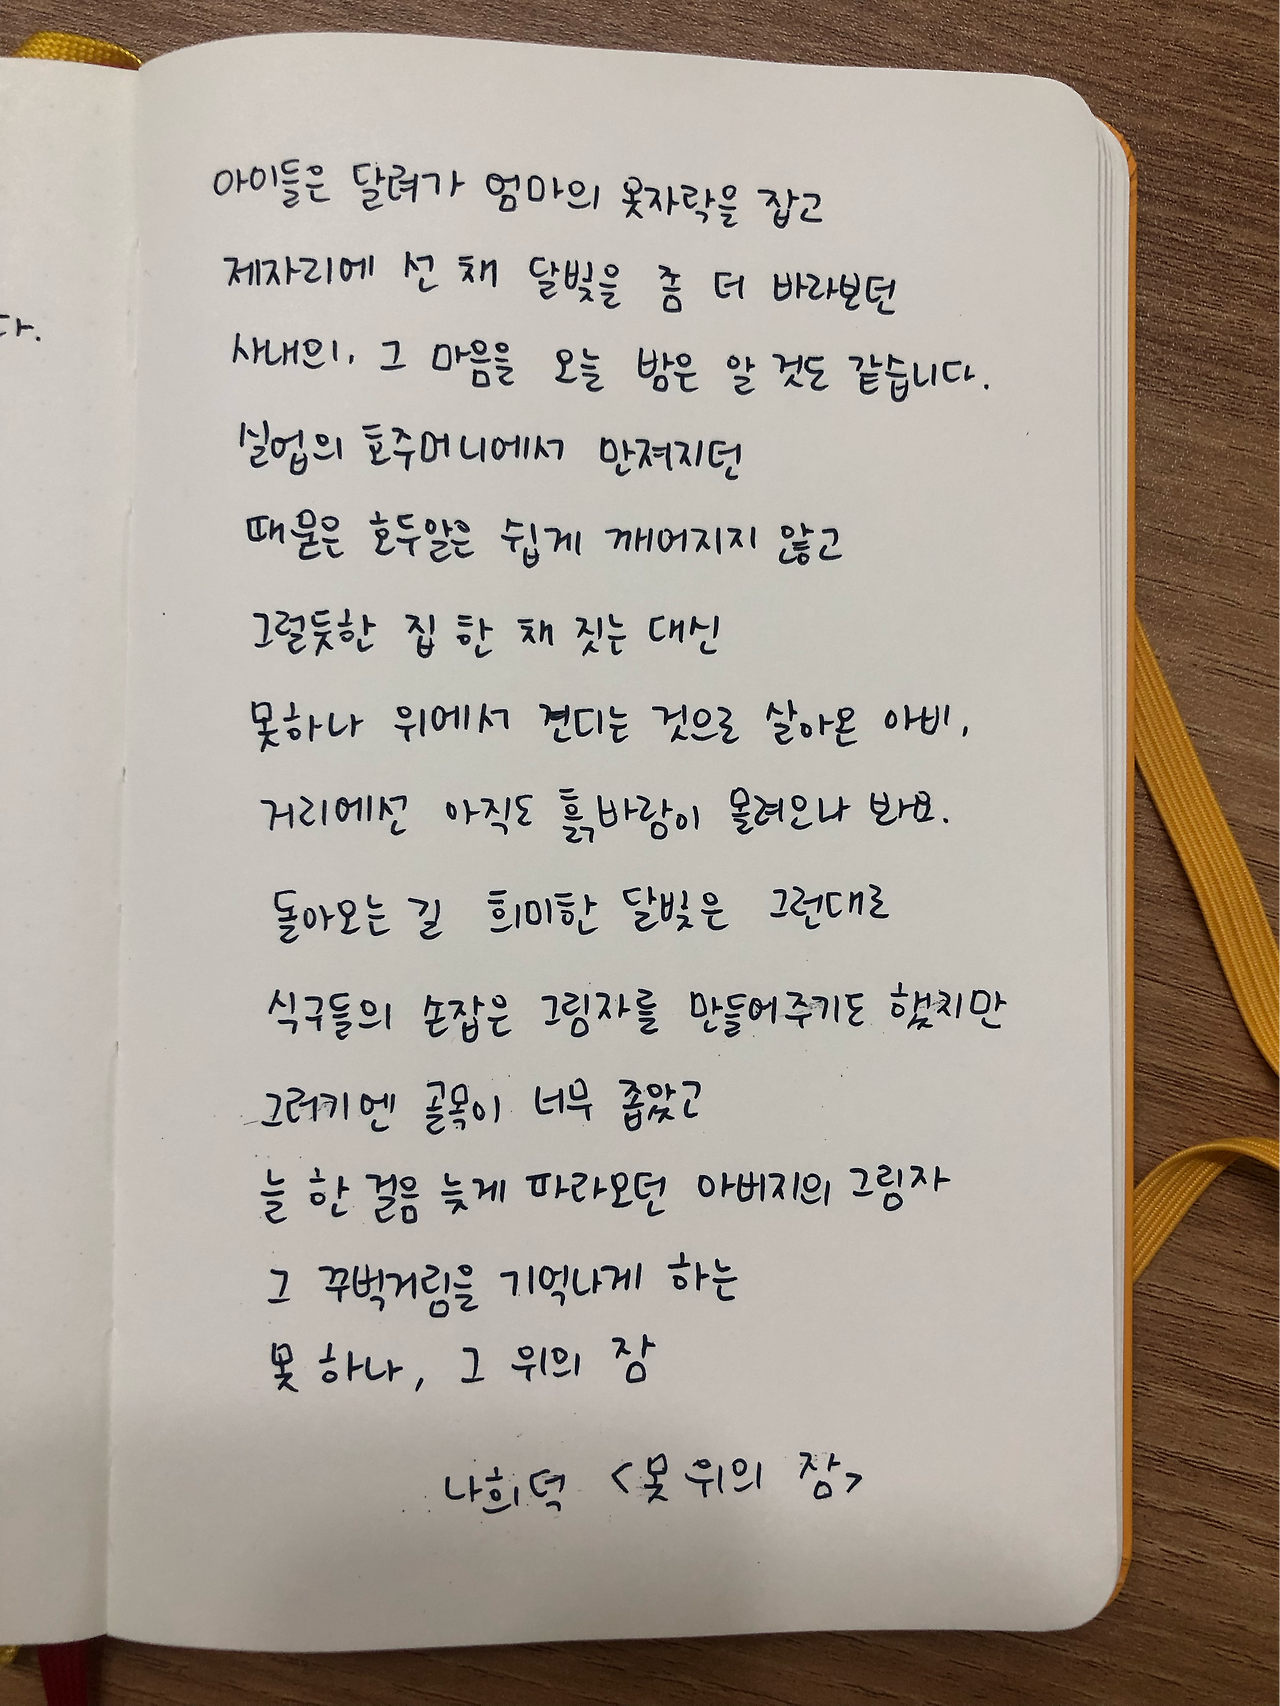 다.
아이들은 달려가 엄마의 옷자락을 잡고
제자리에 선 채 달빛을 좀 더 바라보던
사내의, 그 마음을 오늘 밤은 알 것도 같습니다.
실업의 호주머니에서 만져지던
때묻은 호두알은 쉽게 깨어지지 않고
그럴듯한 집 한 채 짓는 대신
못하나 위에서 견디는 것으로 살아온 아비,
거리에선 아직도 흙바람이 몰려오나 봐요.
돌아오는 길 희미한 달빛은 그런대로
식구들의 손잡은 그림자를 만들어주기도 했지만
그러기엔 골목이 너무 좁았고
늘 한 걸음 늦게 따라오던 아버지의 그림자
그 꾸벅거림을 기억나게 하는
못 하나, 그 위의 잠
나희덕 <못 위의 잠>